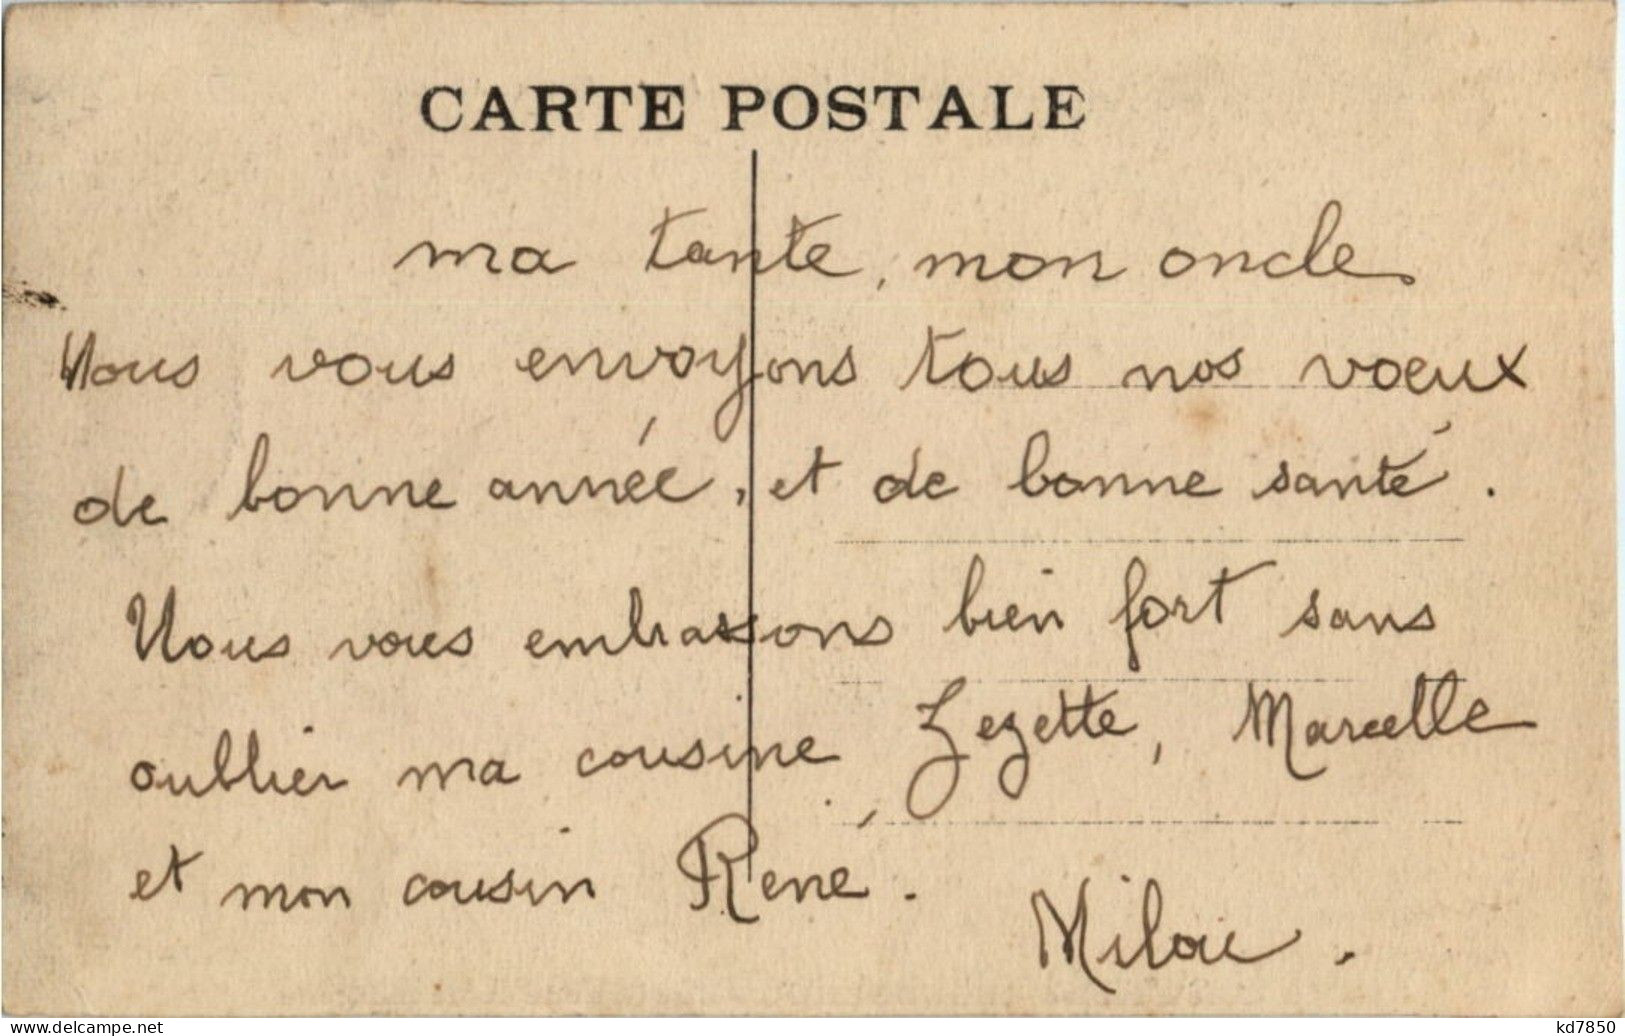 CARTE POSTALE
ma tante, mon oncle
Nous vous envoyons tous nos voeux
de bonne année, et de bonne santé.
Nous vous embrassons bien fort sans
oublier ma cousine Zezette, Marcelle
et mon cousin René.
Milou.
kd7850